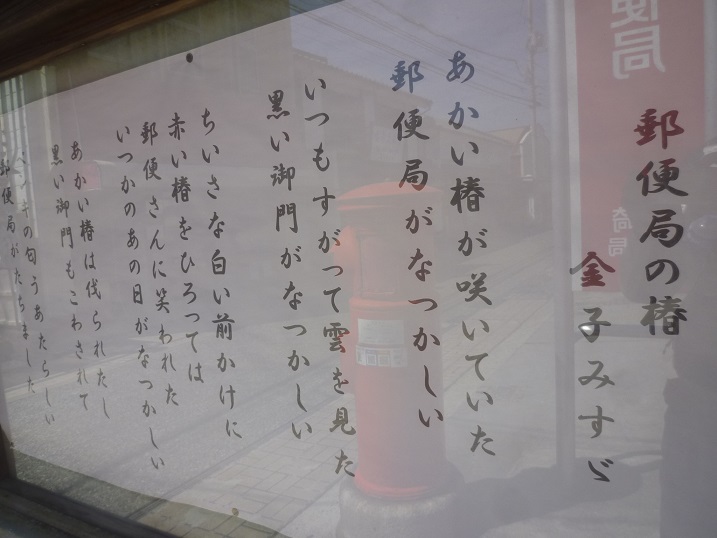 郵便局の椿
金子みすゞ
あかい椿が咲いていた
郵便局がなつかしい
いつもすがって雲を見た
黒い御門がなつかしい
ちいさな白い前かけに
赤い椿をひろっては
郵便さんに笑われた
いつかのあの日がなつかしい
あかい椿は伐られたし
黒い御門もこわされて
ペンキの匂うあたらしい
郵便局がたちました
便局
局